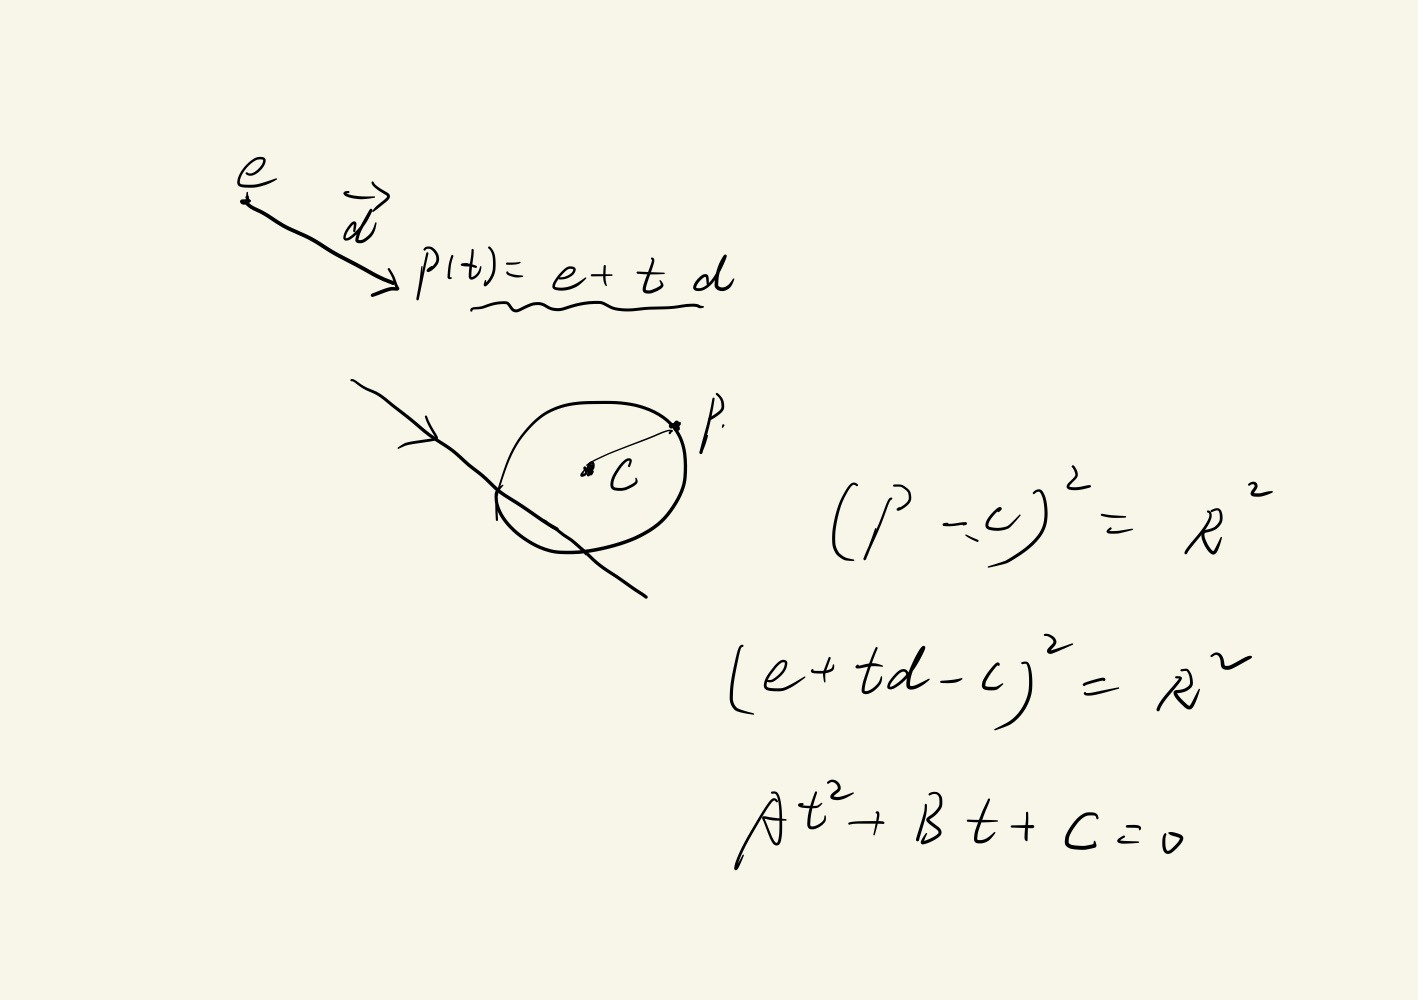 e
d⃗
p(t) = e + t d
P.
c
(P - c)² = R²
(e + td - c)² = R²
At² + Bt + C = 0